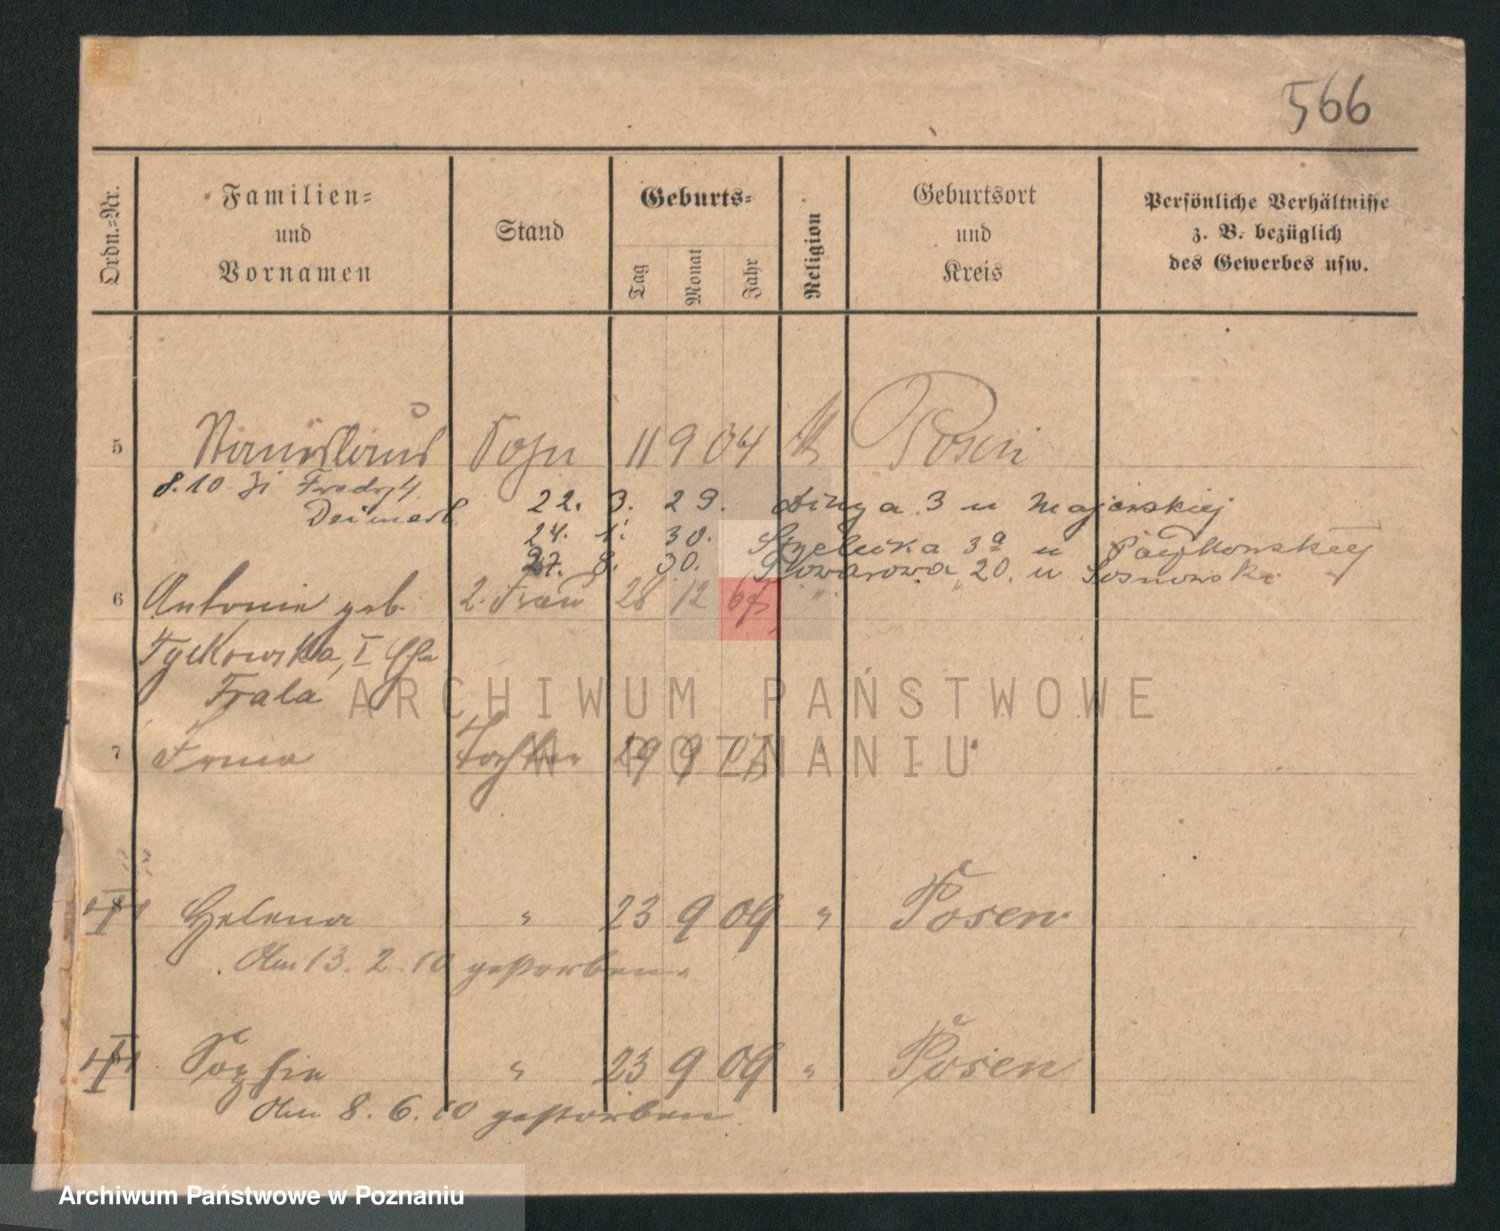 566
Ordn.=Nr.
Familien=
und
Vornamen
Stand
Geburts=
Tag
Monat
Jahr
Religion
Geburtsort
und
Kreis
Persönliche Verhältnisse
z. B. bezüglich
des Gewerbes usw.
5 Stanislaus Sohn 11 9 04 Posen
8.10
22. 3. 29. Długa 3 u Majerskiej
24. 1. 30. Strzelecka 3a u
27. 8. 30. 20. u Sosnowski
6 Antonie geb. 2. Frau 28 12 "
I Ehe
Frala
ARCHIWUM PAŃSTWOWE
7 Irma Tochter 29 9 07 "
W POZNANIU
8 Helena " 23 9 09 " Posen
Am 13. 2. 10 gestorben.
Sophie " 23 9 09 " Posen
Am 8. 6. 10 gestorben
Archiwum Państwowe w Poznaniu